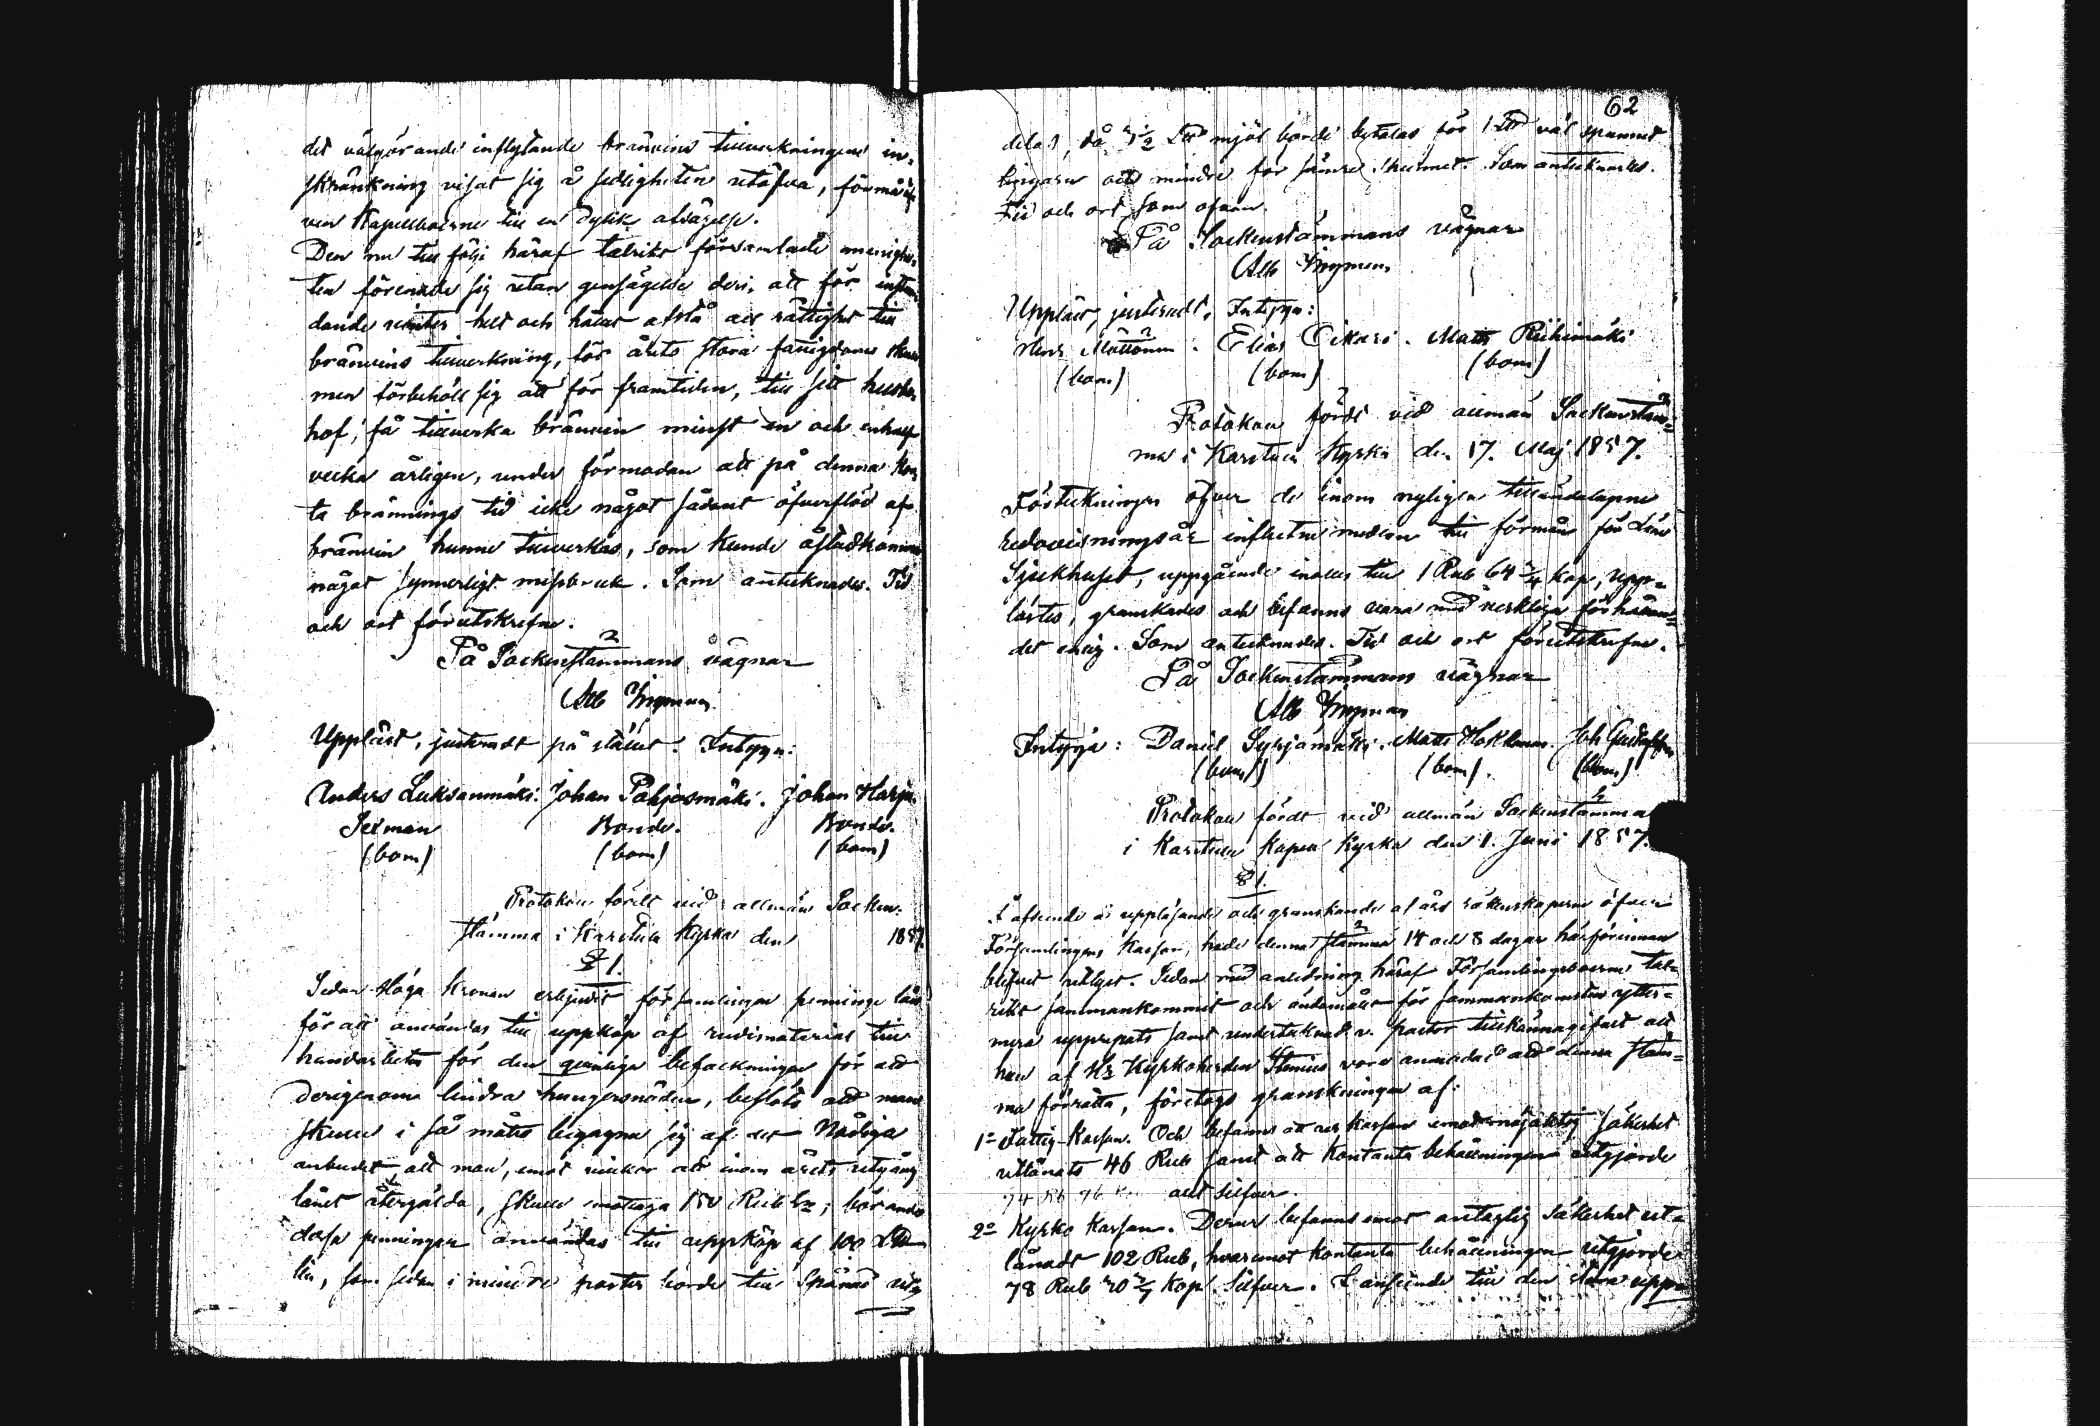 det välgörande inflytande bränvins tillverkningens in-
skränkning visat sig å sedligheten utöfva, förmå
ven Kapellboerne till en dylik afsägelse.
Den nu till följe häraf talrikt församlade menighe-
ten förenade sig utan gensägelse deri, att för instun-
dande vinter helt och hållet afstå all rättighet till
bränvins tillverkning, för årets stora fattigdoms skull
men förbehöll sig att för framtiden, till sitt husbe-
hof, få tillverka bränvin minst en och enhalf
vecka årligen, under förmodan att på denna kor-
ta brännings tid icke något sådant öfverflöd af
bränvin kunne tillverkas, som kunde åstadkomma
något synnerligt missbruk. Som antecknades. Tid
och ort förutskrefne.
På Sockenstämmans vägnar
Alb Ingman
Uppläst, justeradt på stället. Intyga:
Anders Luksanmäki. Johan Pohjosmäki. Johan Harju.
Sexman Bonde. Bonde.
(bom) (bom) (bom)
Protokoll fördt vid allmän Socken-
stämma i Karstula Kyrka den 1857.
§ 1.
Sedan Höga Kronan erbjudit församlingen penninge lån
för att användas till uppköp af rudimaterial till
handarbeten för den qvinliga befolkningen för att
derigenom lindra hungersnöden, beslöts att man
skulle i så måtto begagna sig af det Nådiga
anbudet att man, emot vilkor att inom årets utgång
lånet återgälda, skulle emottaga 150 Rub Sr; börande
dessa penningar användas till uppköp af 100 L℔
lin, som sedan i mindre poster borde till Spånad ut-
62
delas, då 2½ L℔ mjöl borde betalas för 1 L℔ väl spunnet
lingarn och mindre för sämre spunnet. Som antecknades.
Tid och ort som ofvan.
På Sockenstämmans vägnar
Alb Ingman
Uppläst, justeradt, Intyga:
Henr Mattonen. Elias Oikari. Matts Riihimäki
(bom) (bom) (bom)
Protokoll fördt vid allmän Sockenstäm-
ma i Karstula Kyrka den 17. Maj 1857.
Förteckningen öfver de inom nyligen tilländalupne
redovisningsår influtne medlen till förmån för Läns
Sjukhuset, uppgående inalles till 1 Rub 64 kop, upp-
lästes, granskades och befanns vara med verkliga förhållan-
det enlig. Som antecknades. Tid och ort förutskrefne.
På Sockenstämmans vägnar
Alb Ingman
Intyga: Daniel Syrjämäki. Matts Hokkanen. Joh Gustafsson
(bom) (bom). (bom)
Protokoll fördt vid allmän Sockenstämma
i Karstula Kapell Kyrka den 1. Juni 1857.
§ 1.
I afseende å uppläsande och granskande af års räkenskaperne öfver
Församlingens Kassor, hade denna stämma 14 och 8 dagar härförinnan
blifvit utlyst. Sedan med anledning häraf Församlingsboerne tal-
rikt sammankommit och ändamålet för sammankomsten ytter-
mera upprepats samt undertecknad v. pastor tillkännagifvit att
han af Hr Kyrkoherden Stenius vore anmodad att denna stäm-
ma förrätta, företogs granskningen af:
1o Fattig-Kassan. Och befanns att ur kassan emot nöjaktig säkerhet
utlånats 46 Rub samt att kontanta behållningen utgjorde
74 Rb 76 allt silfver.
2o Kyrko Kassan. Derur befanns emot antaglig säkerhet ut-
lånadt 102 Rub, hvaremot kontanta behållningen utgjorde
78 Rub 20 2/7 kop. Silfver. I anseende till den stora upp-